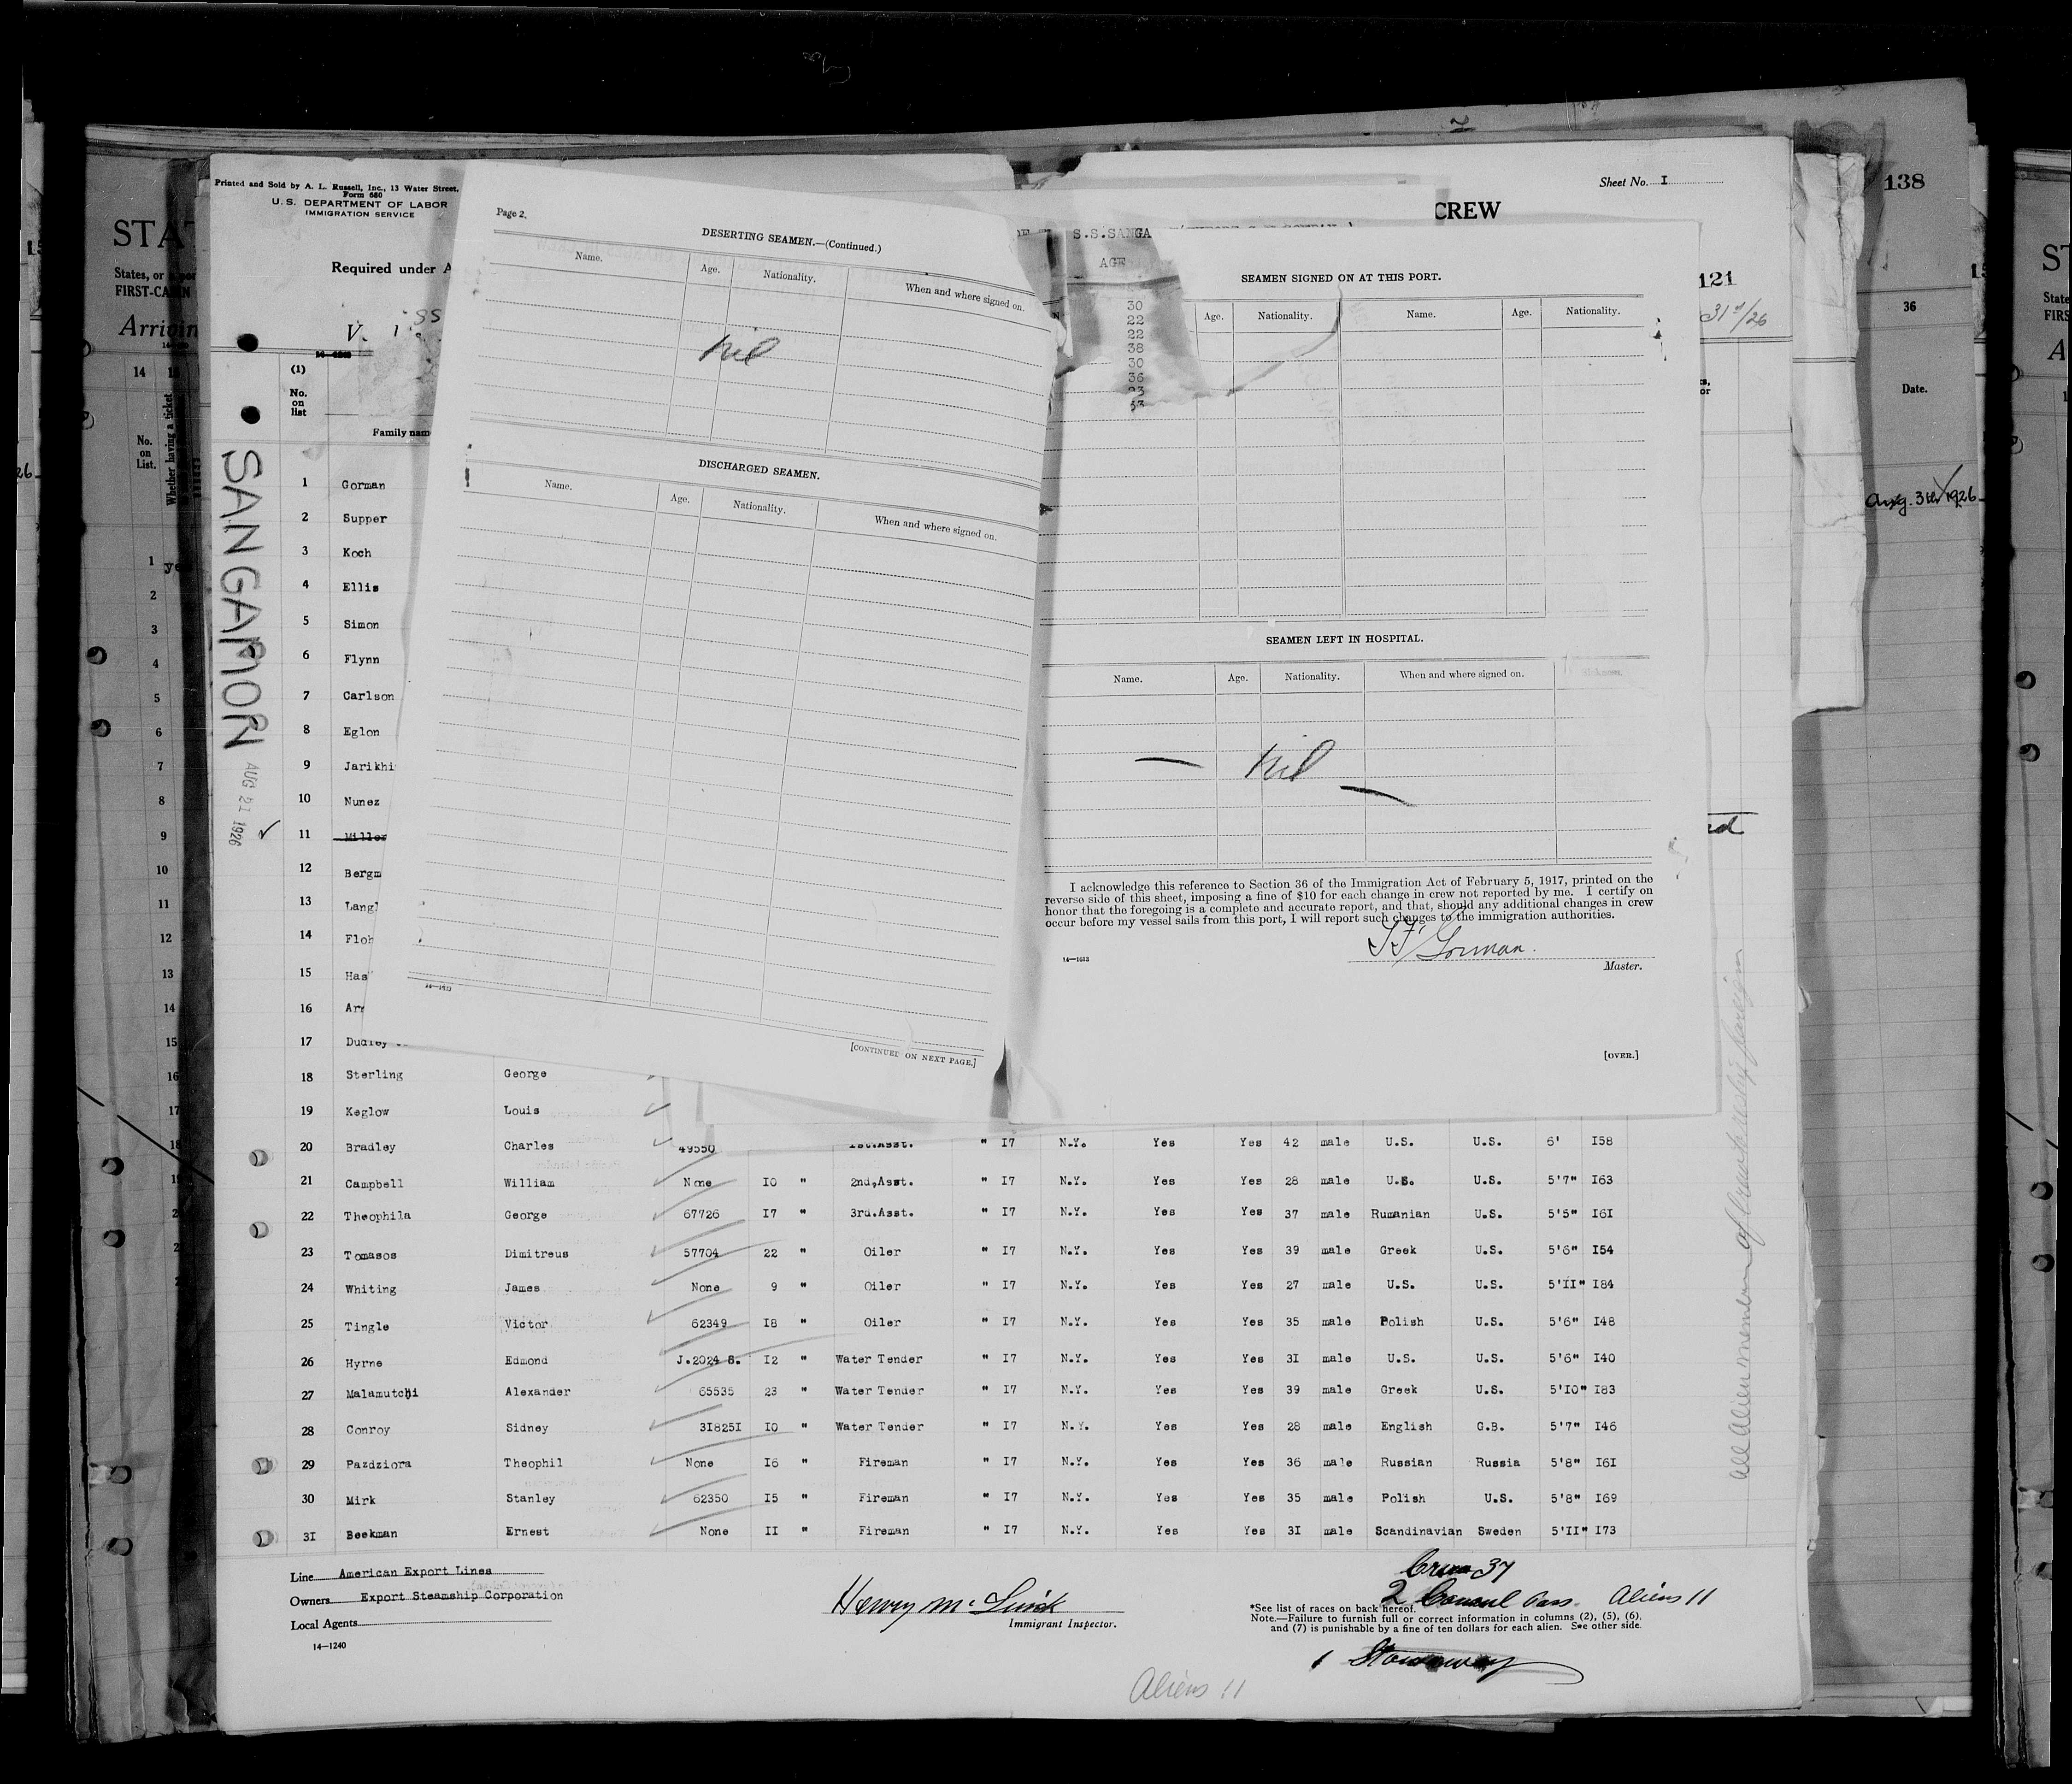 138
Sheet No. I
Printed and Sold by A. L. Russell, Inc., 13 Water Street,
Form 680
U. S. DEPARTMENT OF LABOR
IMMIGRATION SERVICE
CREW
Required under A
121
31st/26
SANGAMON
AUG 21 1926
(1)
No. on list
Family nam
Page 2.
DESERTING SEAMEN.—(Continued.)
Name. Age. Nationality. When and where signed on.
Nil
DISCHARGED SEAMEN.
Name. Age. Nationality. When and where signed on.
14—1613
[CONTINUED ON NEXT PAGE.]
S.S.SANGA
AGE
30
22
22
38
30
36
23
SEAMEN SIGNED ON AT THIS PORT.
Age. Nationality. Name. Age. Nationality.
SEAMEN LEFT IN HOSPITAL.
Name. Age. Nationality. When and where signed on. Sickness.
— Nil —
I acknowledge this reference to Section 36 of the Immigration Act of February 5, 1917, printed on the
reverse side of this sheet, imposing a fine of $10 for each change in crew not reported by me. I certify on
honor that the foregoing is a complete and accurate report, and that, should any additional changes in crew
occur before my vessel sails from this port, I will report such changes to the immigration authorities.
Gorman.
14—1613
Master.
[OVER.]
1 Gorman
2 Supper
3 Koch
4 Ellis
5 Simon
6 Flynn
7 Carlson
8 Eglon
9 Jarikhi
10 Nunez
11 Miller
12 Bergm
13 Langl
14 Floh
15 Has
16 Arr
17 Dudley
18 Sterling George
19 Keglow Louis
20 Bradley Charles 49550 1st.Asst. " I7 N.Y. Yes Yes 42 male U.S. U.S. 6' I58
21 Campbell William None IO " 2nd,Asst. " I7 N.Y. Yes Yes 28 male U.S. U.S. 5'7" I63
22 Theophila George 67726 I7 " 3rd.Asst. " I7 N.Y. Yes Yes 37 male Rumanian U.S. 5'5" I6I
23 Tomasos Dimitreus 57704 22 " Oiler " I7 N.Y. Yes Yes 39 male Greek U.S. 5'6" I54
24 Whiting James None 9 " Oiler " I7 N.Y. Yes Yes 27 male U.S. U.S. 5'II" I84
25 Tingle Victor 62349 I8 " Oiler " I7 N.Y. Yes Yes 35 male Polish U.S. 5'6" I48
26 Hyrne Edmond J.2024 S. I2 " Water Tender " I7 N.Y. Yes Yes 3I male U.S. U.S. 5'6" I40
27 Malamutchi Alexander 65535 23 " Water Tender " I7 N.Y. Yes Yes 39 male Greek U.S. 5'IO" I83
28 Conroy Sidney 3I825I IO " Water Tender " I7 N.Y. Yes Yes 28 male English G.B. 5'7" I46
29 Pazdziora Theophil None I6 " Fireman " I7 N.Y. Yes Yes 36 male Russian Russia 5'8" I6I
30 Mirk Stanley 62350 I5 " Fireman " I7 N.Y. Yes Yes 35 male Polish U.S. 5'8" I69
3I Beekman Ernest None II " Fireman " I7 N.Y. Yes Yes 3I male Scandinavian Sweden 5'II" I73
Line American Export Lines
Owners Export Steamship Corporation
Local Agents
14—1240
Immigrant Inspector.
Crew 37
2 Consul Pass. Aliens 11
*See list of races on back hereof.
Note.—Failure to furnish full or correct information in columns (2), (5), (6),
and (7) is punishable by a fine of ten dollars for each alien. See other side.
1 Stowaway
Aliens 11
States, or
FIRST-CA
14
No. on List.
Whether having a ticket
36
Date.
Aug. 31st/1926